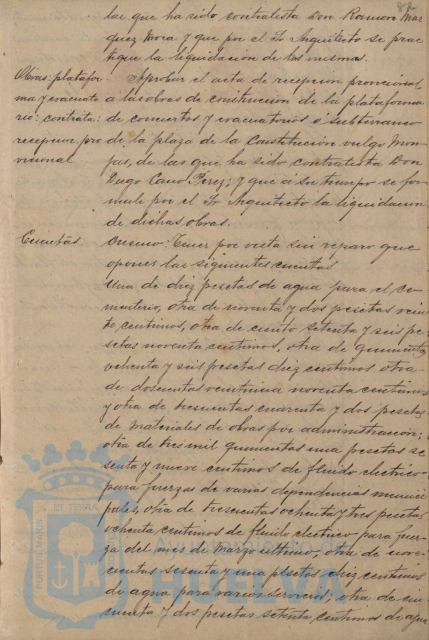 las que ha sido contratista Don Ramon Mar
quez Mora y que por el Sr Arquitecto se prac
tique la liquidacion de las mismas.
Obras: platafor
ma y evacuato
rio: contrata:
recepcion pro
visional
Aprobar el acta de recepcion provisional
á las obras de construccion de la plataforma
de conciertos y evacuatorios ó subterraneo
de la plaza de la Constitucion vulgo Mon
jas, de las que ha sido contratista Don
Diego Cano Perez; y que á su tiempo se for
mule por el Sr Arquitecto la liquidacion
de dichas obras.
Cuentas.
Tener por vista sin reparo que
oponer las siguientes cuentas
Una de diez pesetas de agua para el ce
menterio, otra de noventa y dos pesetas vein
te centimos, otra de ciento setenta y seis pe
setas noventa centimos, otra de quinientas
ochenta y seis pesetas diez centimos otra
de doscientas veintiuna noventa centimos
y otra de trescientas cuarenta y dos pesetas
de materiales de obras por administracion;
otra de tres mil quinientas una pesetas se
senta y nueve centimos de fluido electrico
para fuerzas de varias dependencias munici
pales, otra de trescientas ochenta y tres pesetas
ochenta centimos de fluido electrico para fuer
za del mes de Marzo ultimo, otra de nove
cientas sesenta y una pesetas diez centimos
de agua para varios servicios; otra de cin
cuenta y dos pesetas setenta centimos de agua
PORTUS MARIS ET TERRAE
AYUNTAMIENTO DE
HUELVA